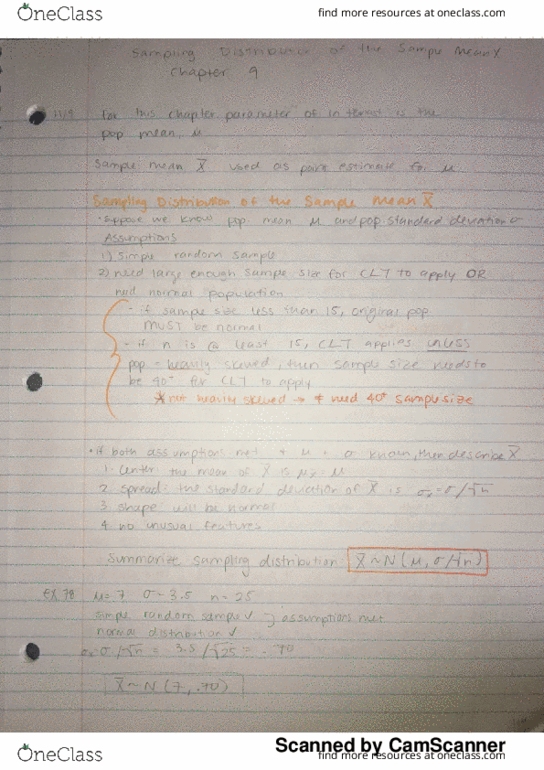 OneClass
find more resources at oneclass.com
Sampling Distribution of the Sample Mean X̄
Chapter 9
11/9 For this chapter parameter of interest is the
pop mean, μ
Sample mean X̄ used as point estimate for μ.
Sampling Distribution of the Sample Mean X̄
· Suppose we know pop. mean μ and pop. standard deviation σ
Assumptions
1) Simple random sample
2) need large enough sample size for CLT to apply OR
need normal population
- if sample size less than 15, original pop
MUST be normal
- if n is @ least 15, CLT applies unless
pop = heavily skewed, then sample size needs to
be 40+ for CLT to apply
* not heavily skewed → ≠ need 40+ sample size
· if both assumptions met + μ + σ known, then describe X̄
1. center: the mean of X̄ is μx̄ = μ
2. spread: the standard deviation of X̄ is σx̄ = σ/√n
3. shape: will be normal
4. no unusual features
Summarize sampling distribution: X̄ ~ N (μ, σ/√n)
EX 78 μ = 7 σ = 3.5 n = 25
simple random sample ✓ } assumptions met
normal distribution ✓
σx̄ = σ/√n = 3.5/√25 = .70
X̄ ~ N (7, .70)
Scanned by CamScanner
OneClass
find more resources at oneclass.com